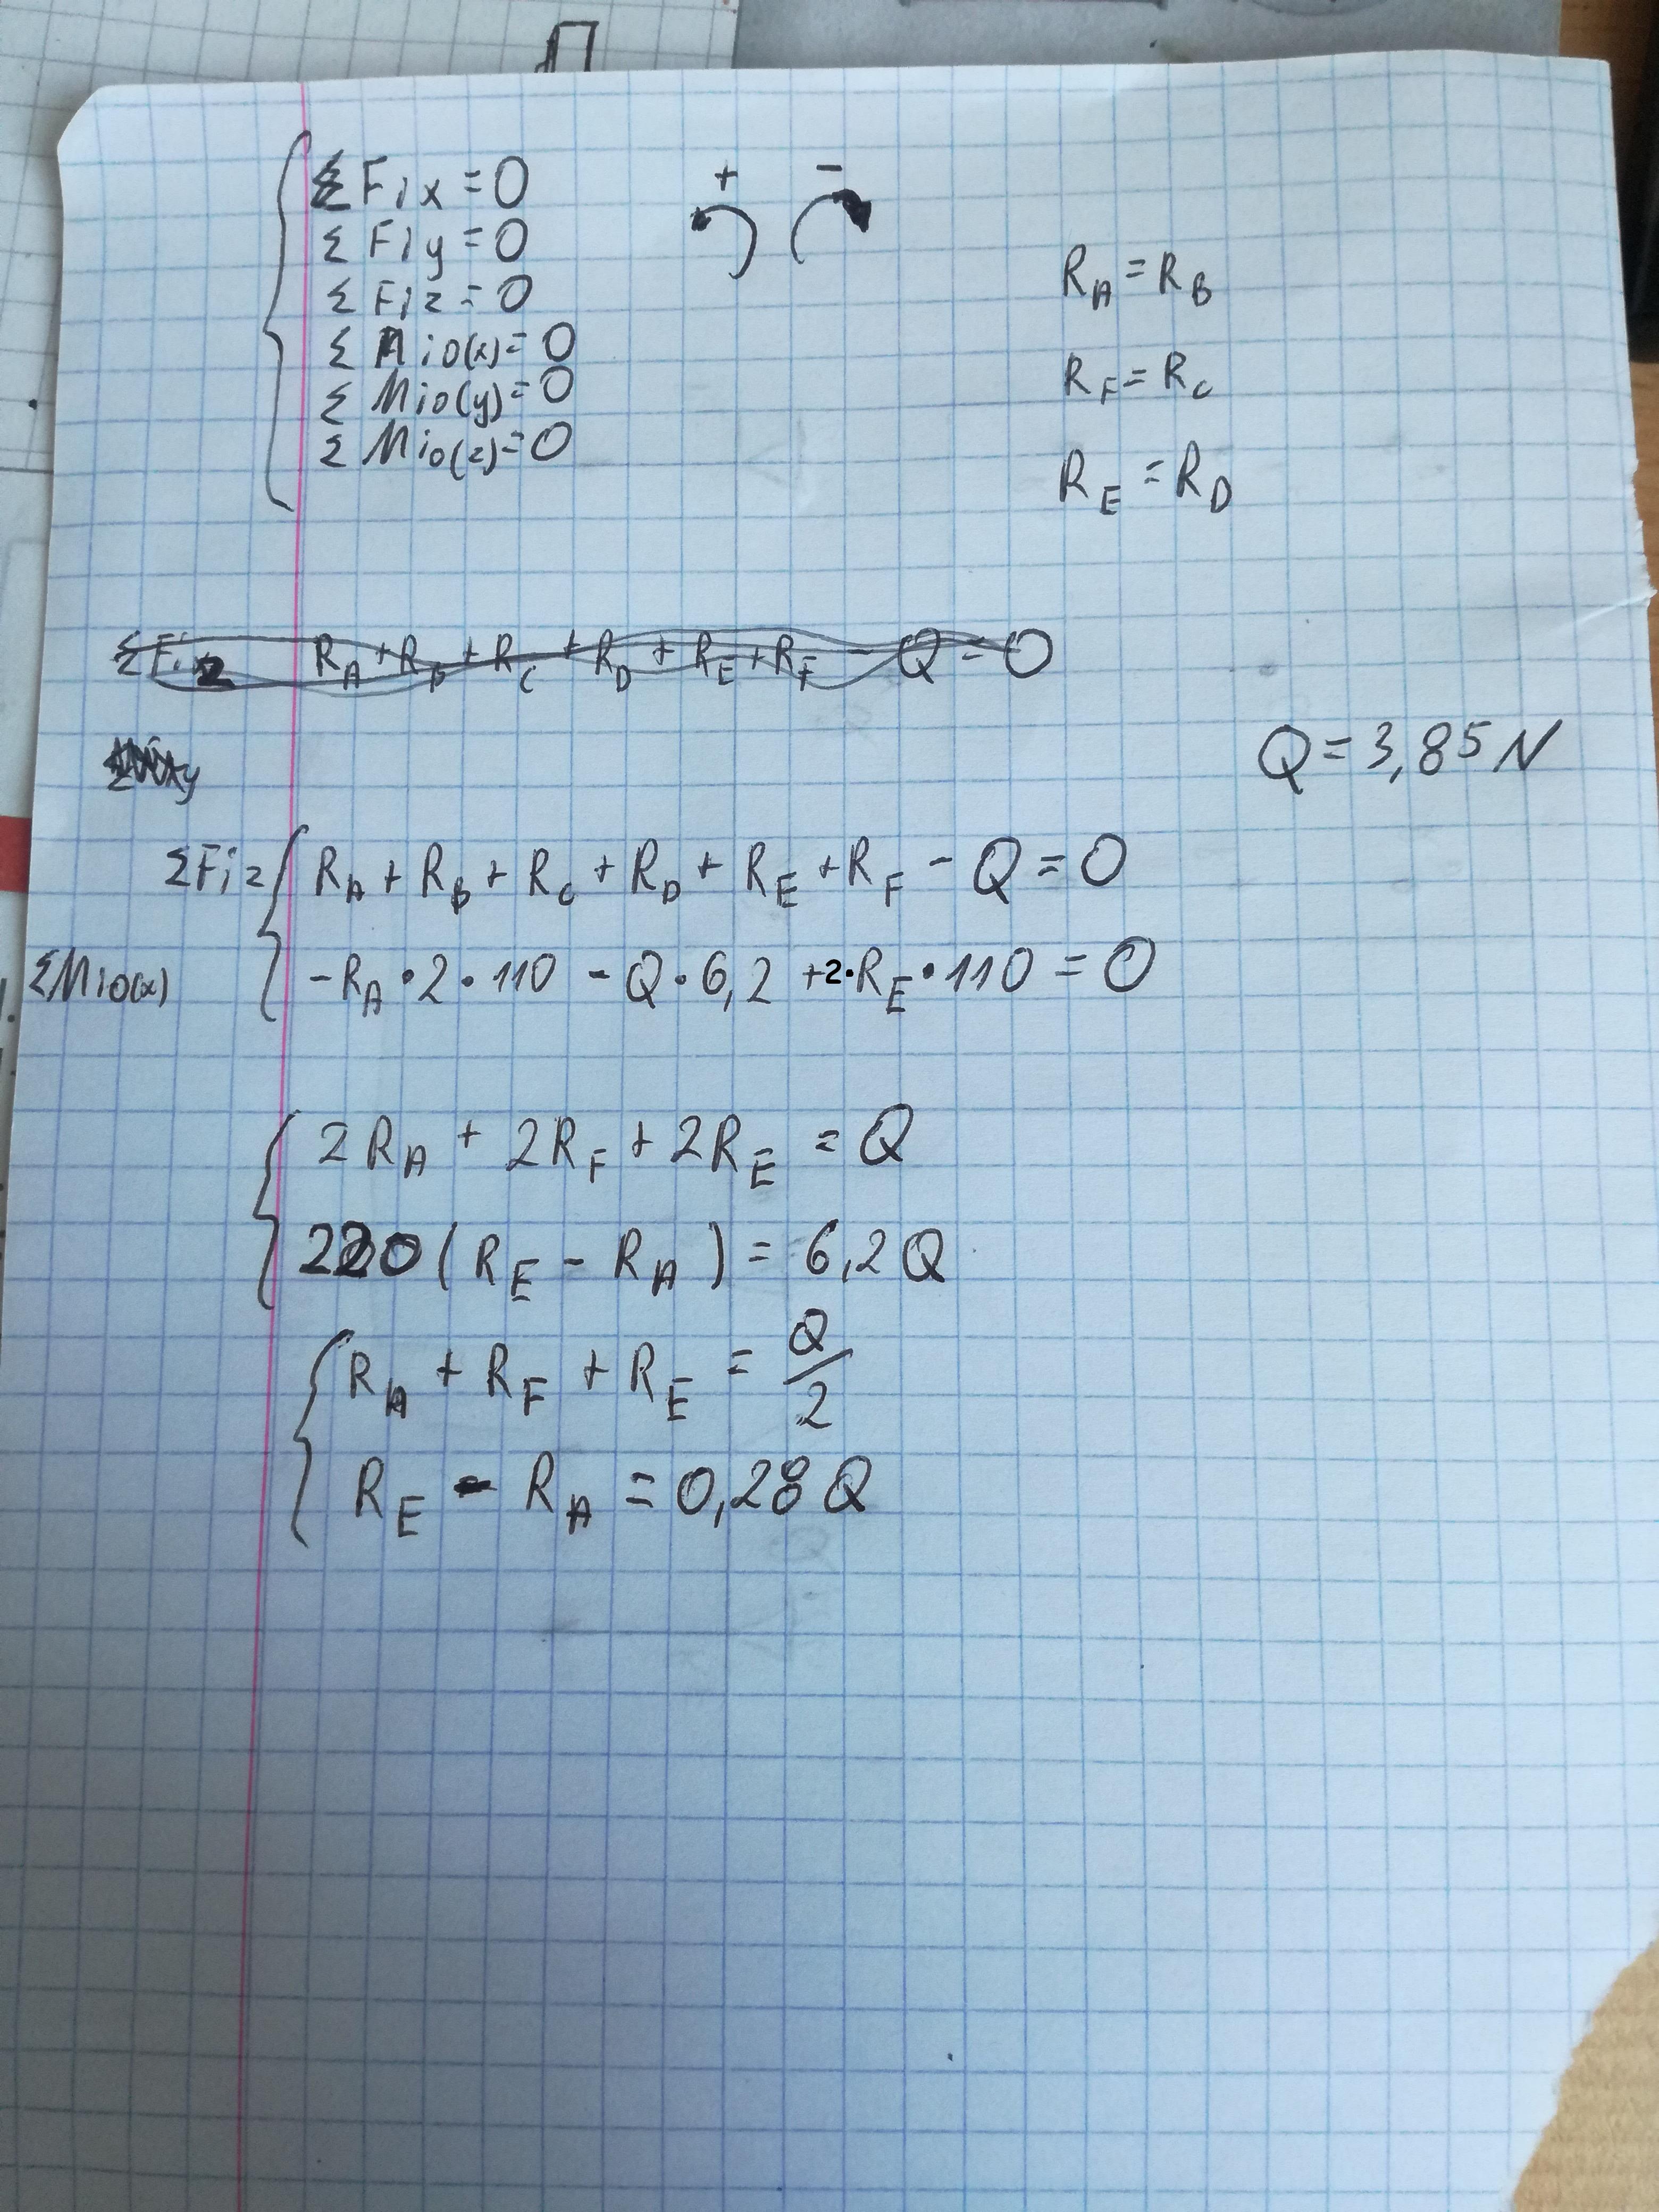 ΣFix = 0
ΣFiy = 0
ΣFiz = 0
ΣMio(x) = 0
ΣMio(y) = 0
ΣMio(z) = 0
+ -
R_A = R_B
R_F = R_C
R_E = R_D
ΣFiz R_A + R_B + R_C + R_D + R_E + R_F - Q = 0
Q = 3,85 N
ΣFiz R_A + R_B + R_C + R_D + R_E + R_F - Q = 0
ΣMio(x) -R_A · 2 · 110 - Q · 6,2 + 2 · R_E · 110 = 0
2R_A + 2R_F + 2R_E = Q
220 (R_E - R_A) = 6,2 Q
R_A + R_F + R_E = Q/2
R_E - R_A = 0,28 Q